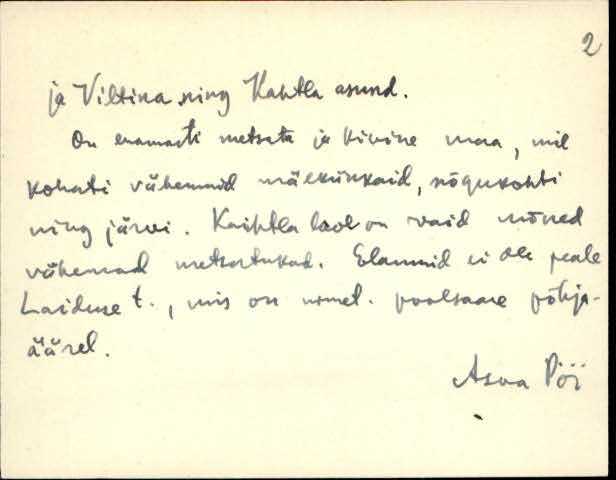 2
ja Viltina ning Kahtla asund.
On enamasti metsata ja kivine maa, mil
kohati vähemaid mäekünkaid, nõgukohti
ning järvi. Kaihtla laol on vaid mõned
vähemad metsatukad. Elamuid ei ole peale
Laiduse t., mis on nimet. poolsaare põhja-
äärel.
Asva Pöi